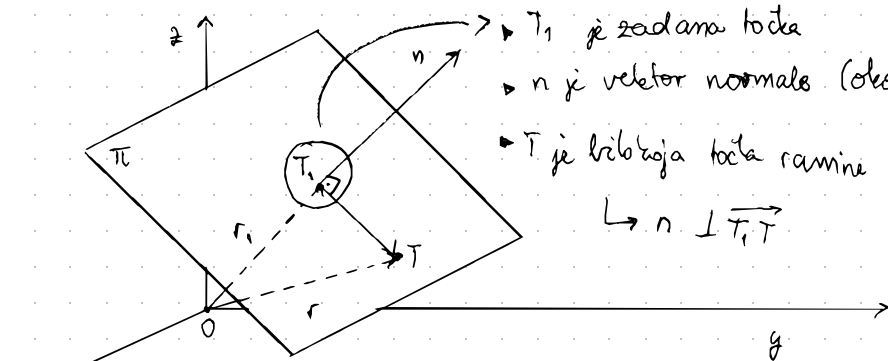 z
n
π
T₁
r₁
T
r
O
y
▸ T₁ je zadana točka
▸ n je vektor normale (oko
▸ T je bilokoja točka ravnine
↳ n ⊥ T₁T